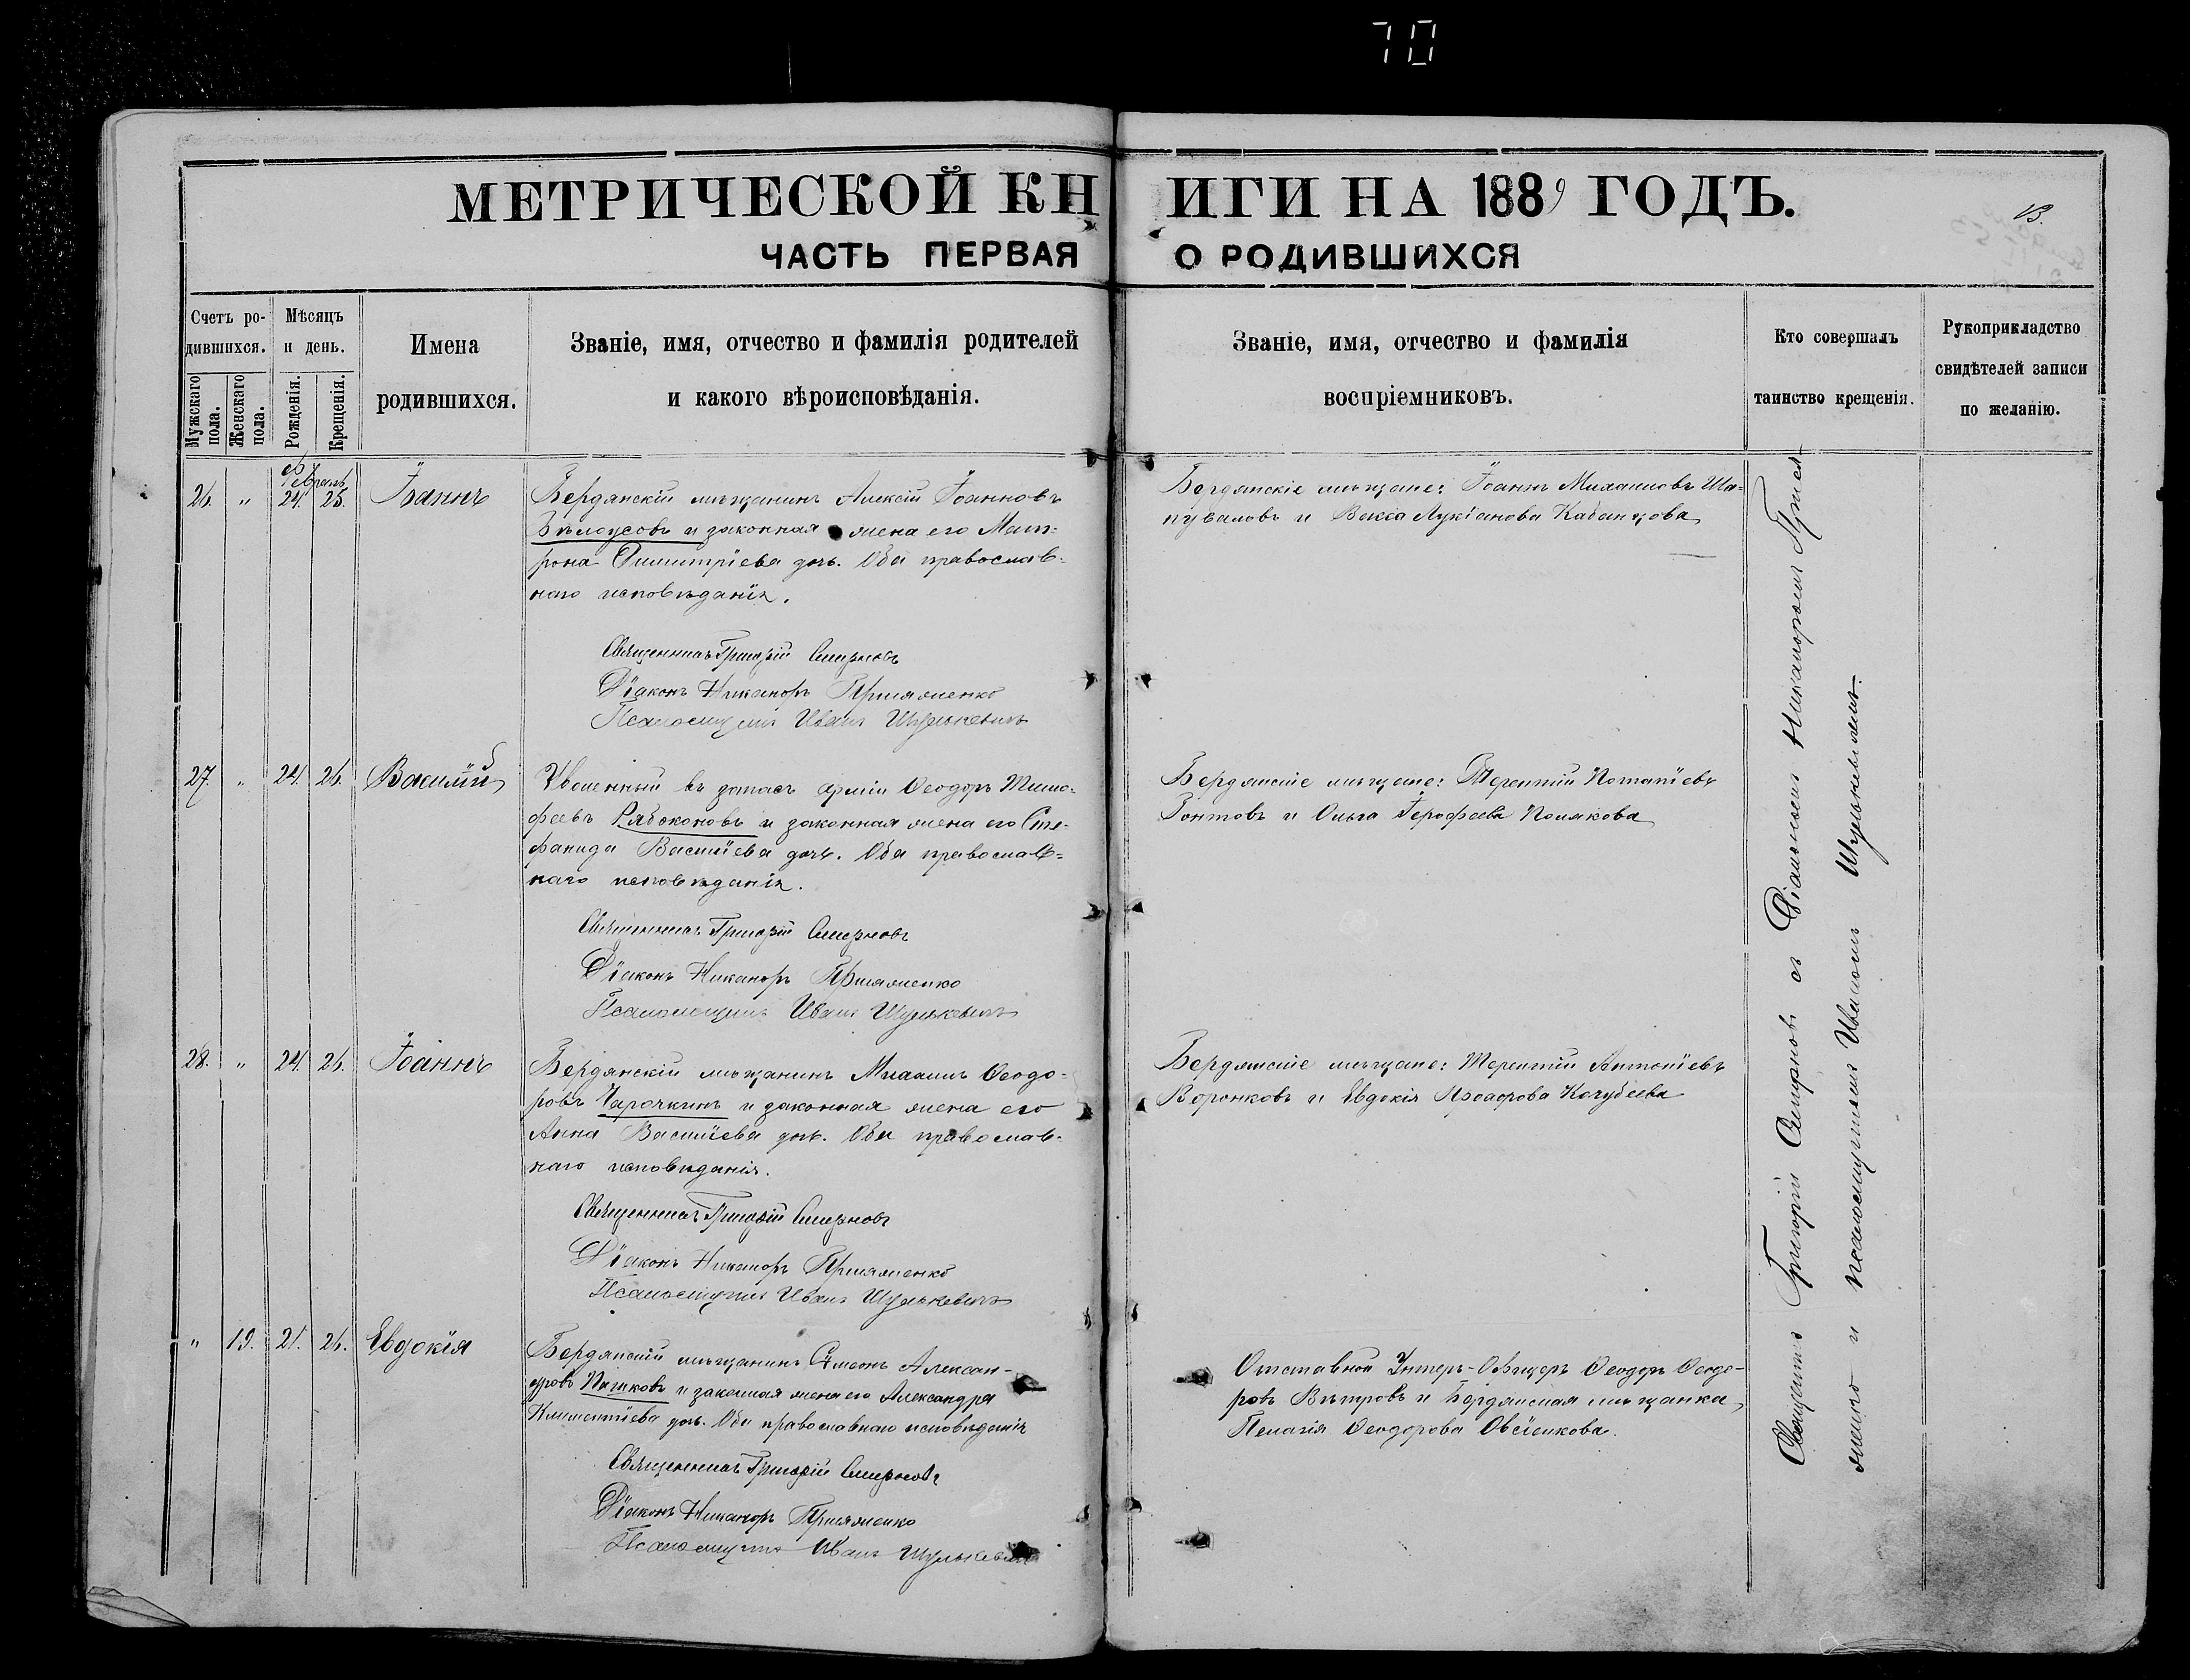 70
МЕТРИЧЕСКОЙ КНИГИ НА 1889 ГОДЪ.
13.
ЧАСТЬ ПЕРВАЯ О РОДИВШИХСЯ
Счетъ ро-
дившихся.
Мужскаго пола.
Женскаго пола.
Мѣсяцъ
и день.
Рожденія.
Крещенія.
Имена
родившихся.
Званіе, имя, отчество и фамилія родителей
и какого вѣроисповѣданія.
Званіе, имя, отчество и фамилія
воспріемниковъ.
Кто совершалъ
таинство крещенія.
Рукоприкладство
свидѣтелей записи
по желанію.
Февраль
26. " 24. 25. Іоаннъ
Бердянскій мѣщанинъ Алексій Іоанновъ
Бѣлоусовъ и законная жена его Мат-
рона Димитріева дочь. Оба православ-
наго исповѣданія.
Священникъ Григорій Смирновъ
Діаконъ Никаноръ
Псаломщикъ Иванъ Шулькевичъ
Бердянскіе мѣщане: Іоаннъ Михаиловъ Ша-
пуваловъ и Васса Лукіанова Кабанцова
27. " 24. 26. Василій
Уволенный въ запасъ арміи Ѳеодоръ Тимо-
феевъ Рябоконовъ и законная жена его Сте-
фанида Василіева дочь. Оба православ-
наго исповѣданія.
Священникъ Григорій Смирновъ
Діаконъ Никаноръ
Псаломщикъ Иванъ Шулькевичъ
Бердянскіе мѣщане: Терентій Потапіевъ
Зонтовъ и Ольга Іерофеева Полякова
28. " 24. 26. Іоаннъ
Бердянскій мѣщанинъ Михаилъ Ѳеодо-
ровъ Чарочкинъ и законная жена его
Анна Василіева дочь. Оба православ-
наго исповѣданія.
Священникъ Григорій Смирновъ
Діаконъ Никаноръ
Псаломщикъ Иванъ Шулькевичъ
Бердянскіе мѣщане: Терентій Антоніевъ
Воронковъ и Евдокія Кочубеева
" 19. 21. 26. Евдокія
Бердянскій мѣщанинъ Сѵмеонъ Алексан-
дровъ и законная жена его Александра
Климентіева дочь. Оба православнаго исповѣданія
Священникъ Григорій Смирновъ
Діаконъ Никаноръ
Псаломщикъ Иванъ Шулькевичъ
Отставной Унтеръ-Офицеръ Ѳеодоръ Ѳеодо-
ровъ Вѣтровъ и Бердянская мѣщанка
Пелагія Ѳеодорова Овсіенкова.
Священникъ Григорій Смирновъ съ Діакономъ Никаноромъ
и псаломщикомъ Иваномъ Шулькевичемъ.